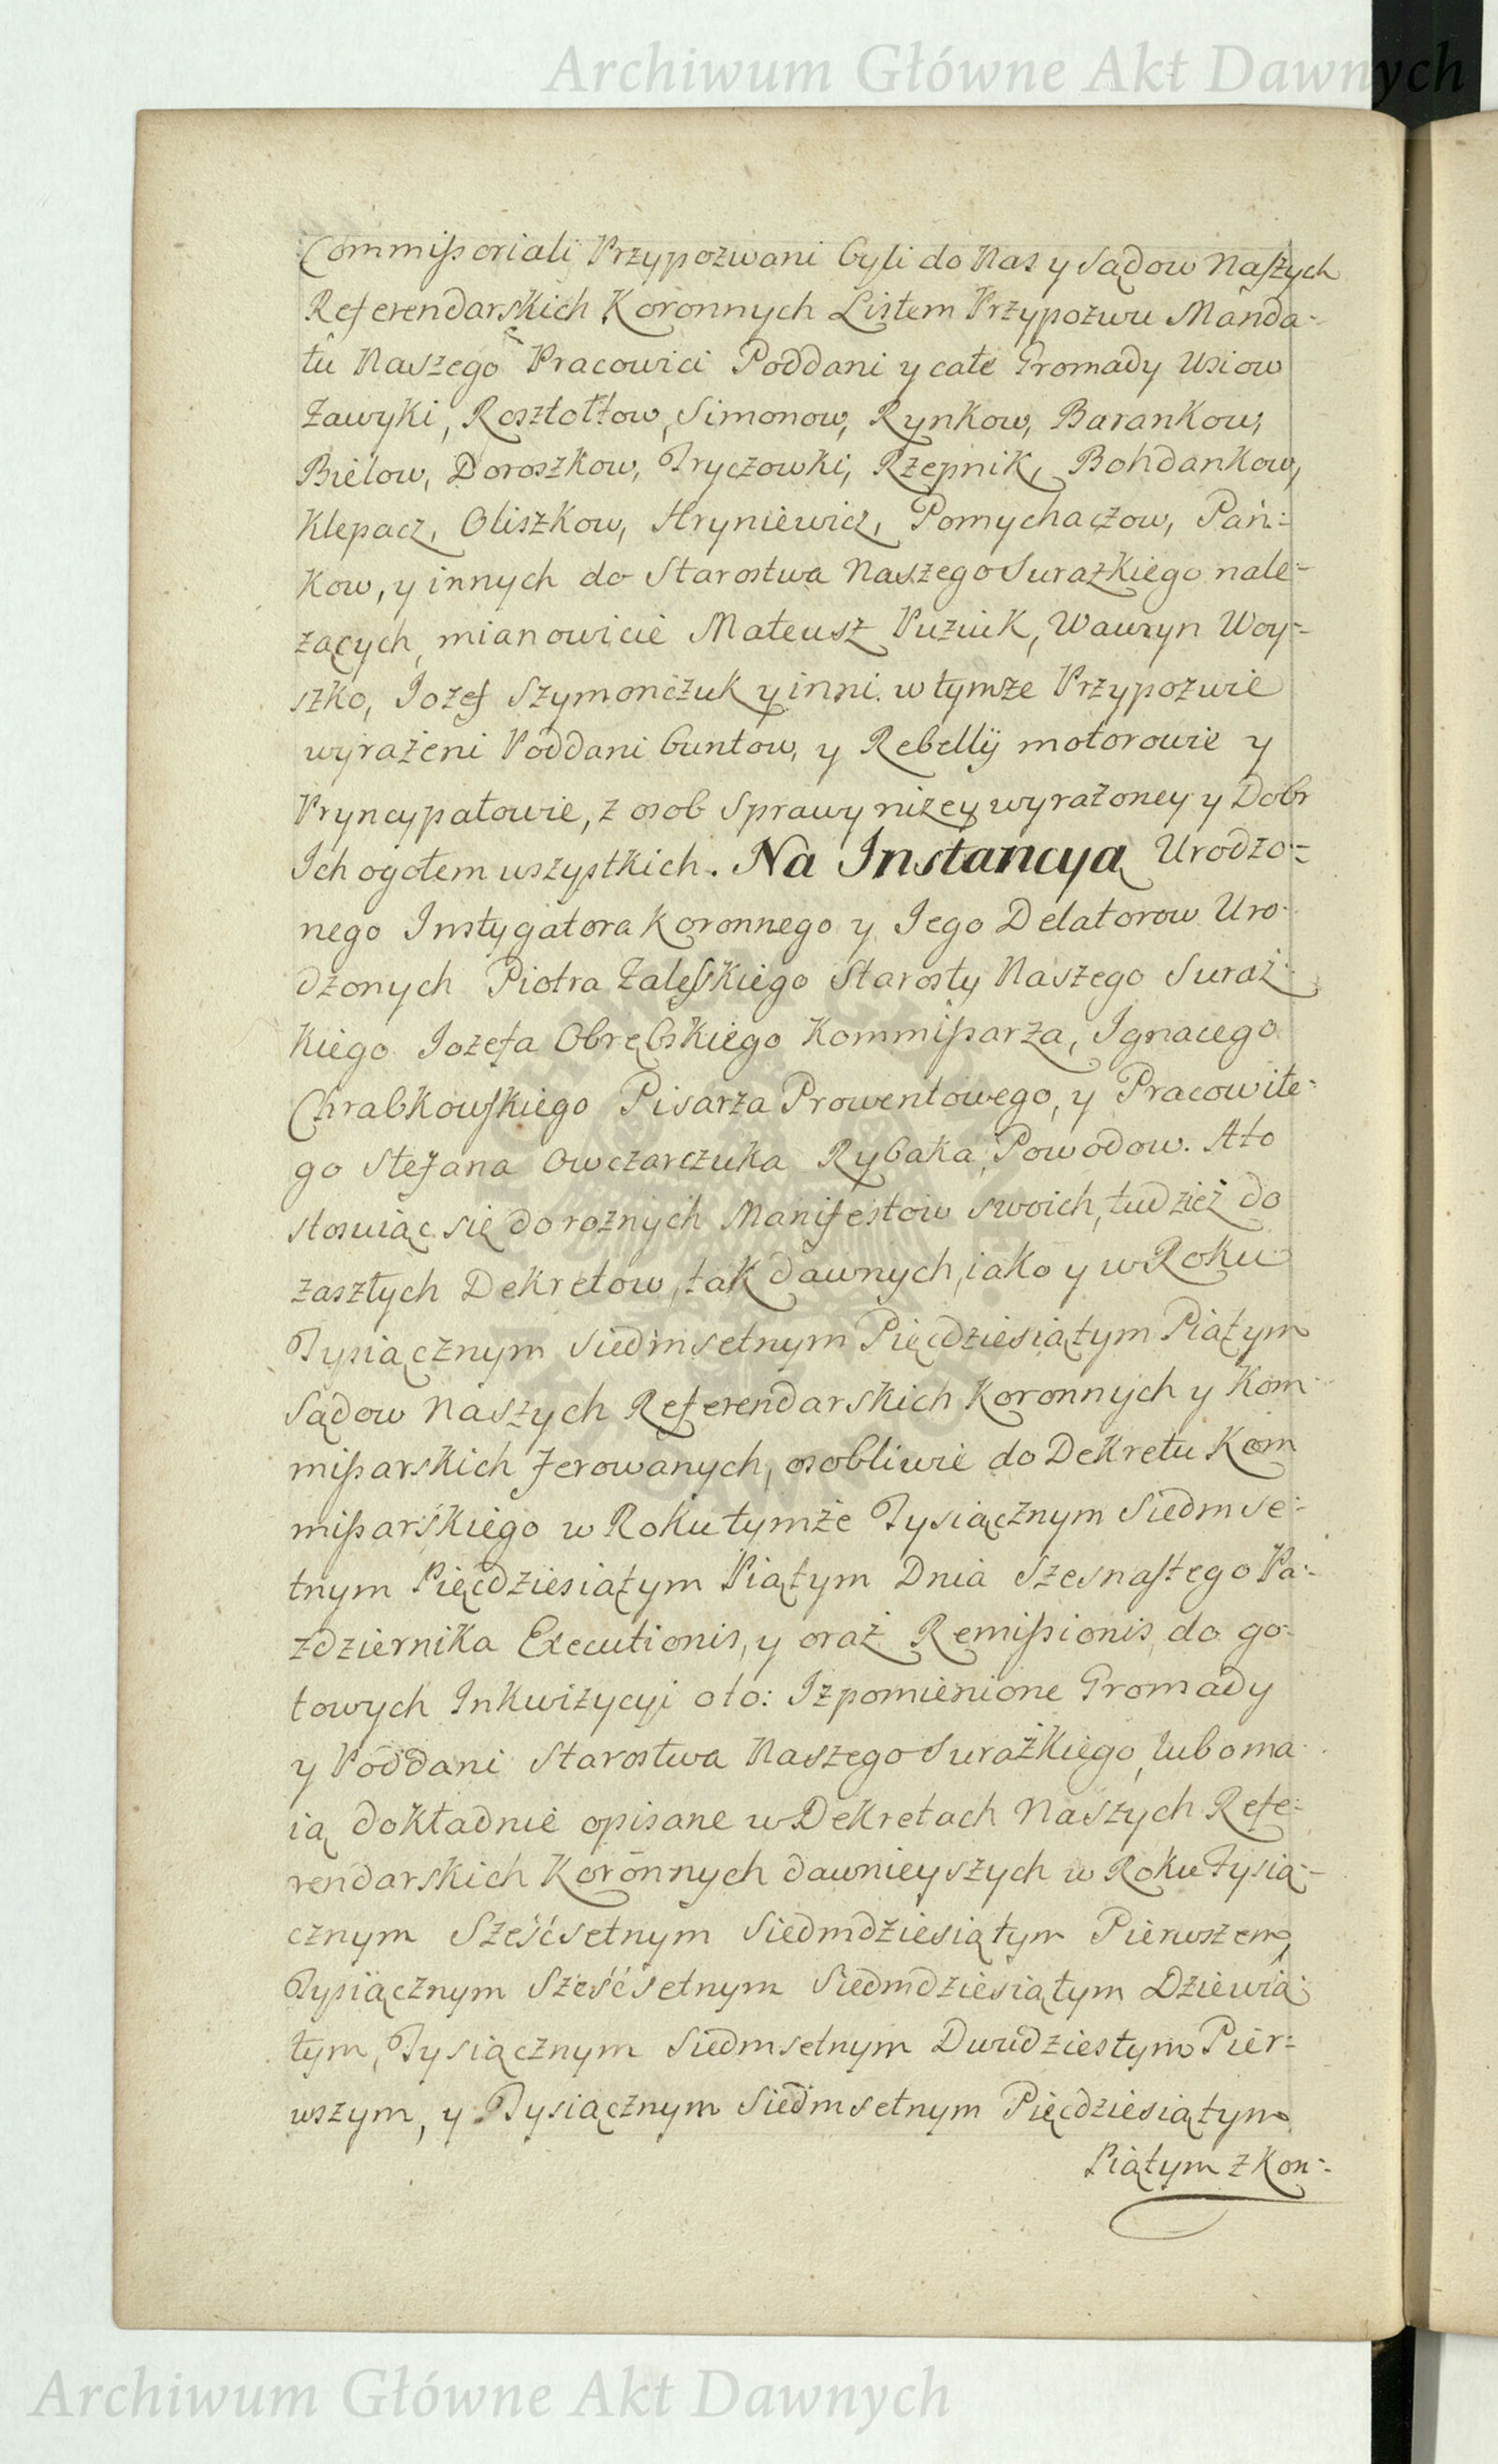 Archiwum Główne Akt Dawnych
Commißoriali Przypozwani byli do Nas y Sądow Naszych
Referendarskich Koronnych Listem Przypozwu Manda-
tu Naszego Pracowici Poddani y całe Gromady Wsiow
Zawyki, Rosztołtow, Simonow, Rynkow, Barankow,
Bielow, Doroszkow, Tryczowki, Rzepnik, Bohdankow,
Klepacz, Oliszkow, Hryniewicz, Pomychaczow, Pań:
kow, y innych do Starostwa Naszego Surazkiego nale-
zących, mianowicie Mateusz Puziuk, Wawryn Woy-
szko, Jozef Szymonczuk y inni w tymże Przypozwie
wyrażeni Poddani buntow, y Rebellij motorowie y
Pryncypałowie, z osob Sprawy niżey wyrażoney y Dobr
Ich ogołem wszystkich. Na Instancyą Urodzo-
nego Instygatora Koronnego y Jego Delatorow Uro-
dzonych Piotra Zaleskiego Starosty Naszego Suraż-
kiego Jozefa Obrębskiego Kommißarza, Ignacego
Chrabkowskiego Pisarza Prowentowego, y Pracowite-
go Stefana Owczarczuka Rybaka, Powodow. A to
stosuiąc się do roznych Manifestow swoich, tudzież do
zaszłych Dekretow, tak dawnych, iako y w Roku
Tysiącznym Siedmsetnym Pięcdziesiątym Piątym
Sądow Naszych Referendarskich Koronnych y Kom-
mißarskich ferowanych, osobliwie do Dekretu Kom
mißarskiego w Roku tymże Tysiącznym Siedmse-
tnym Pięcdziesiątym Piątym Dnia Szesnastego Pa-
zdziernika Executionis, y oraz Remißionis do go-
towych Inkwizycyi oto: Iż pomienione Gromady
y Poddani Starostwa Naszego Surażkiego, lubo ma-
ią dokładnie opisane w Dekretach Naszych Refe-
rendarskich Koronnych dawnieyszych w Roku Tysią-
cznym Sześćsetnym Siedmdziesiątym Pierwszem,
Tysiącznym Sześćsetnym Siedmdziesiątym Dziewią-
tym, Tysiącznym Siedmsetnym Dwudziestym Pier-
wszym, y Tysiącznym Siedmsetnym Pięcdziesiątym
Piątym z Kon-
Archiwum Główne Akt Dawnych